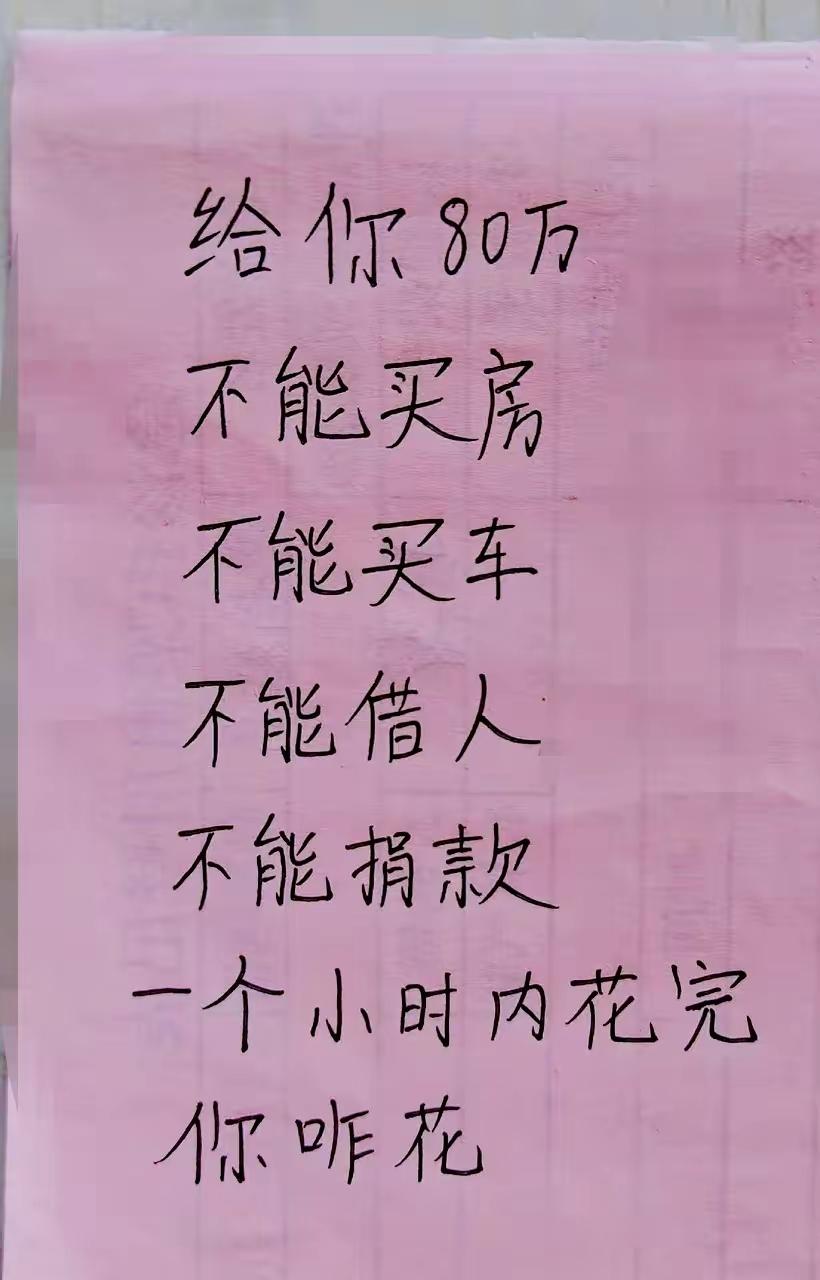 给你80万
不能买房
不能买车
不能借人
不能捐款
一个小时内花完
你咋花